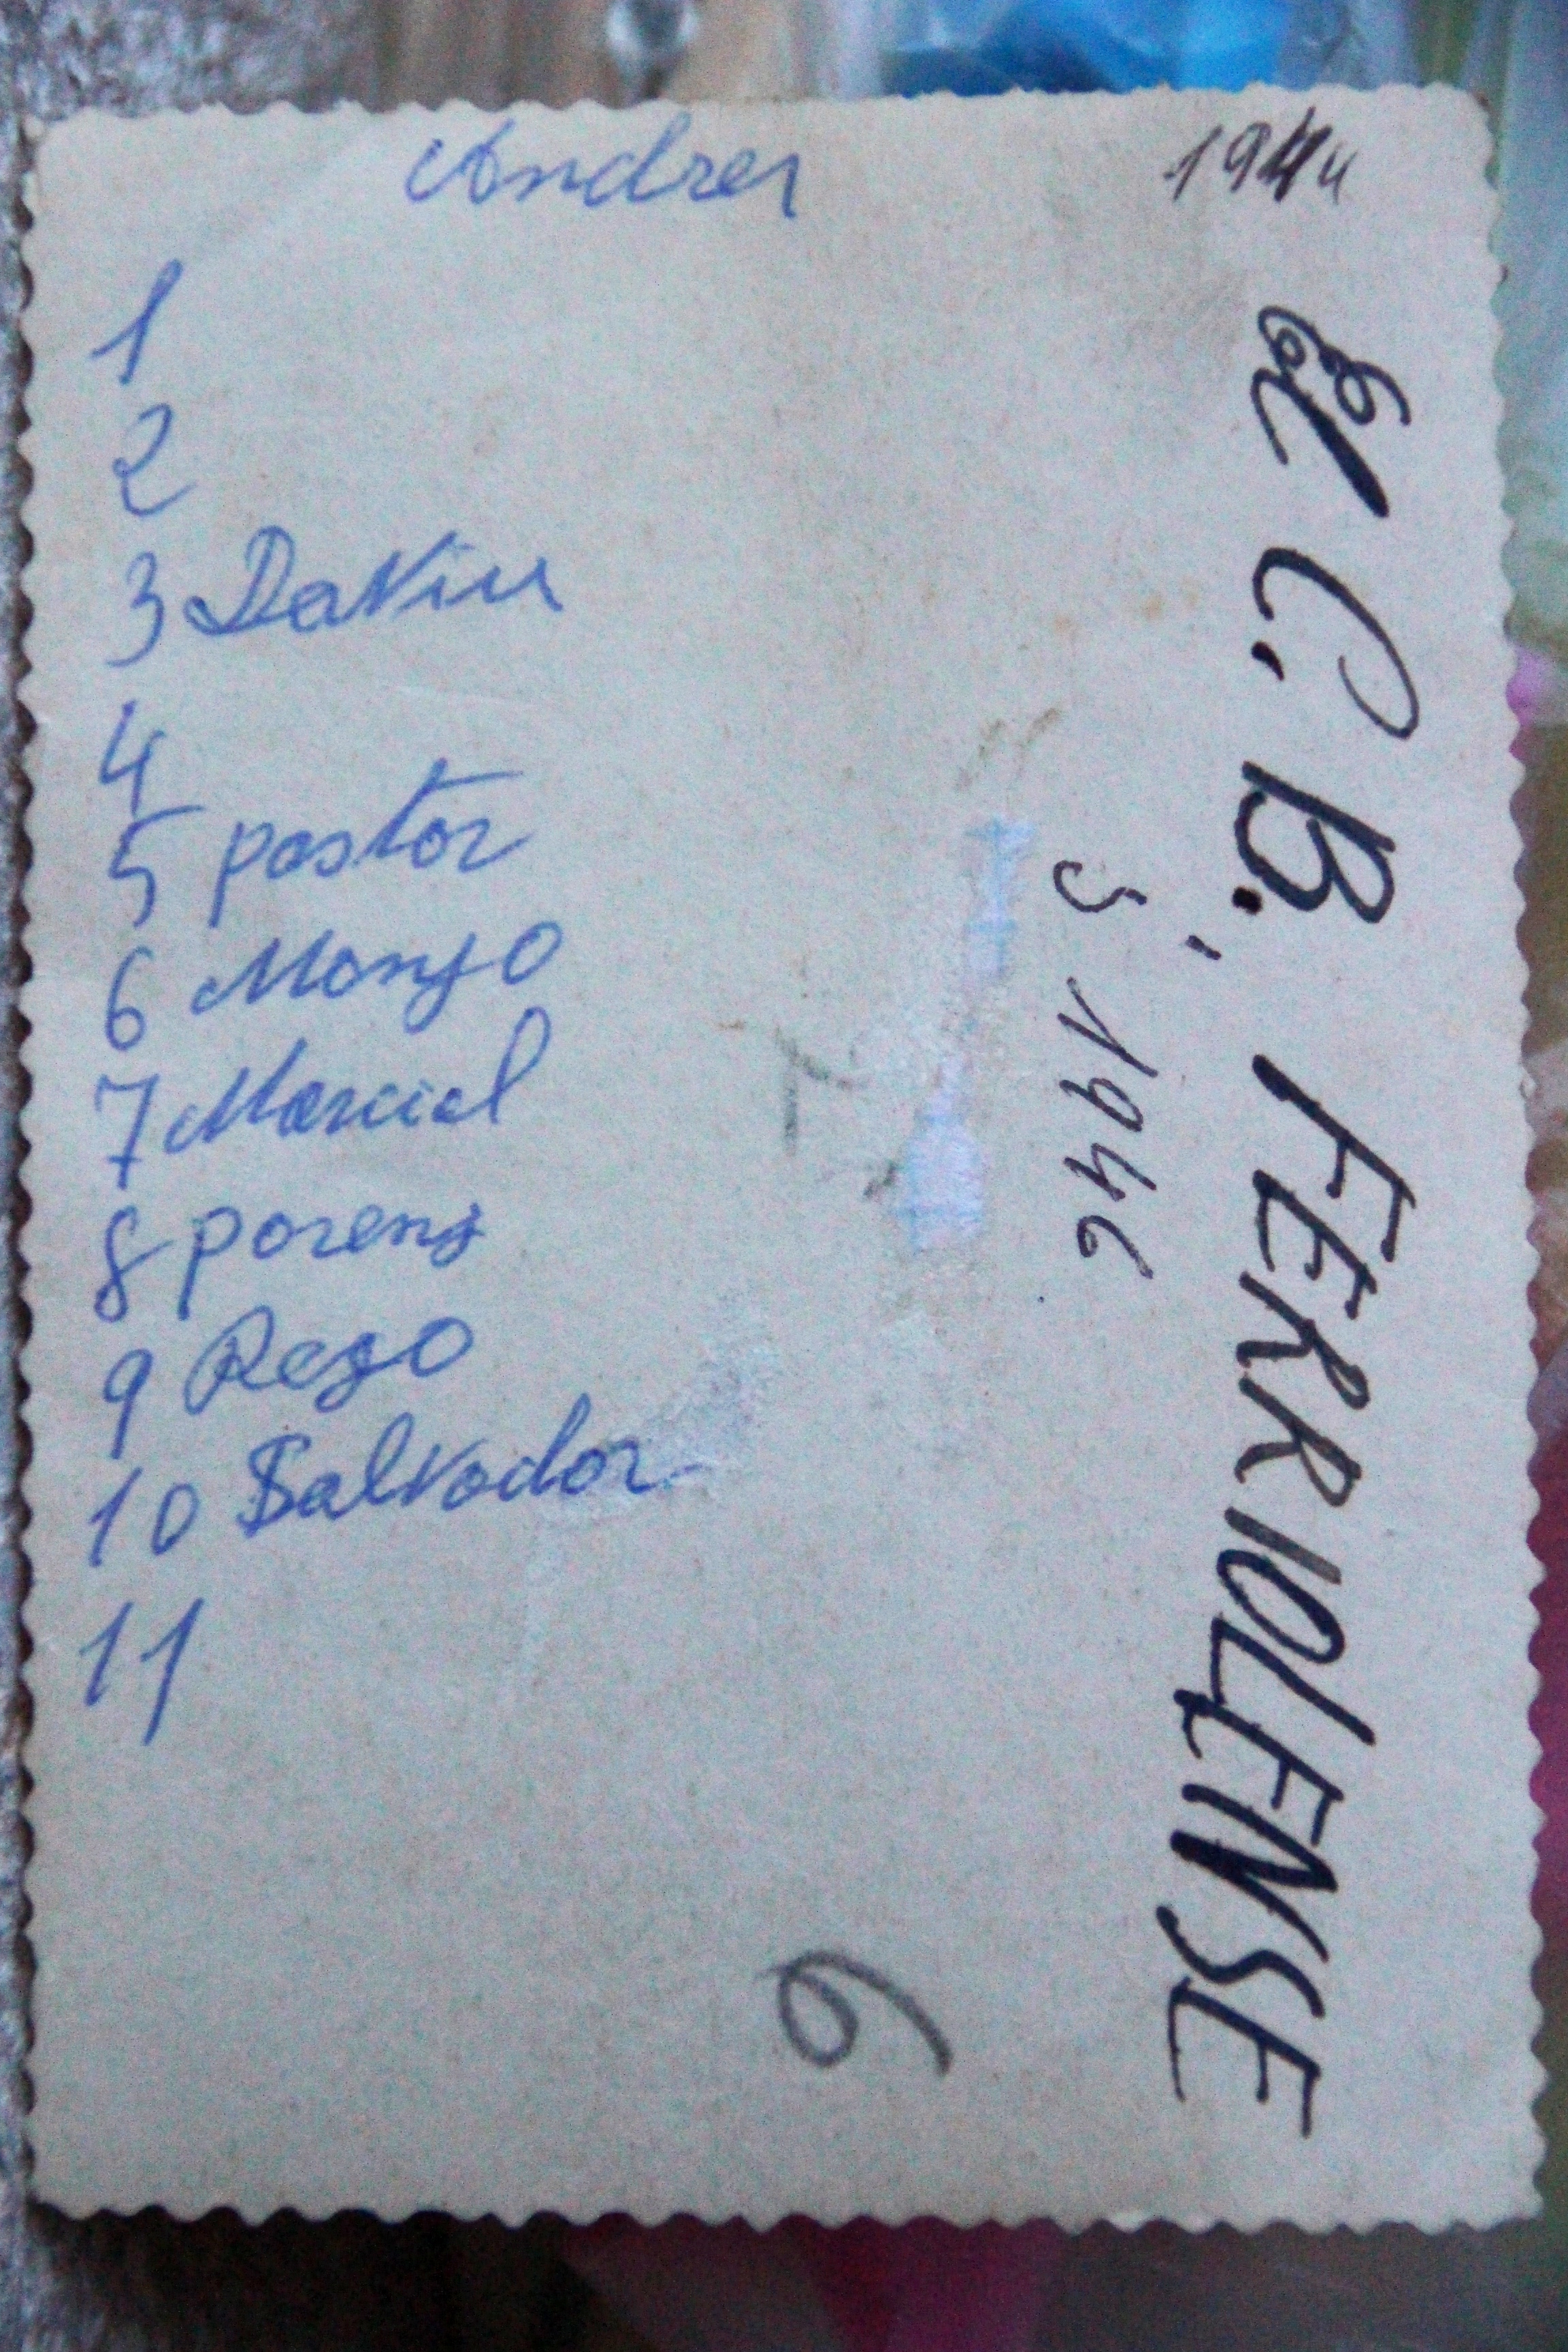 Andres
1944
1
2
3 DaViu
4
5 pastor
6 Monzo
7 Marcial
8 porenz
9 Rezo
10 Salvador
11
el C. B., FERRIOLENSE
S 1946
6